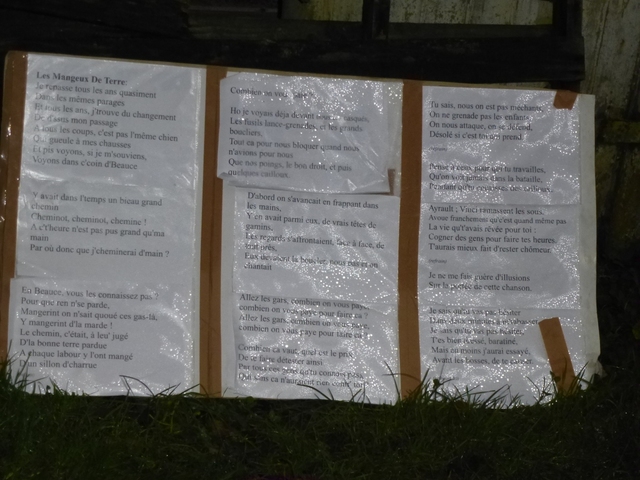 Les Mangeux De Terre
Je r'passe tous les ans quasiment
Dans les mêmes parages
Et tous les ans, j'trouve du changement
De d'ssus mon passage
A tous les coups, c'est pas l'même chien
Qui gueule à mes chausses
Et pis voyons, si je m'souviens,
Voyons dans c'coin d'Beauce
Y avait dans l'temps un bieau grand
chemin
Cheminot, cheminot, chemine !
A c't'heure n'est pas pas grand qu'ma
main
Par où donc que j'cheminerai d'main ?
En Beauce, vous les connaissez pas ?
Pour que ren n'se parde,
Mangerint on n'sait quoué ces gas-là,
Y mangerint d'la marde !
Le chemin, c'était, à leu' jugé
D'la bonne terre pardue
A chaque labour y l'ont mangé
D'un sillon d'charrue
Combien on vous paye ?
Ho je voyais déjà devant tous casqués,
Les fusils lance-grenades, et les grands
boucliers,
Tout ça pour nous bloquer quand nous
n'avions pour nous
Que nos poings, le bon droit, et puis
quelques cailloux.
D'abord on s'avancait en frappant dans
les mains,
Y en avait parmi eux, de vraies têtes de
gamins,
Les regards s'affrontaient, face à face, de
tout près,
Eux devaient la boucler, nous pas et on
chantait
Allez les gars, combien on vous paye,
combien on vous paye pour faire ça ?
Allez les gars, combien on vous paye,
combien on vous paye pour faire ça
Combien ça vaut, quel est le prix
De te faire détester ainsi
Par tous ces gens qu'tu connais pas
Qui sans ça n'auraient rien contre toi
Tu sais, nous on est pas méchants
On ne grenade pas les enfants
On nous attaque, on se défend,
Désolé si c'est toi qui prend
refrain
Pense à ceux pour qui tu travailles,
Qu'on voit jamais dans la bataille,
Pendant qu'tu
Ayrault ; Vinci ramassent les sous.
Avoue franchement qu'c'est quand même pas
La vie qu't'avais rêvée pour toi :
Cogner des gens pour faire tes heures.
T'aurais mieux fait d'rester chômeur.
refrain
Je ne me fais guère d'illusions
Sur la portée de cette chanson.
Je sais qu'tu vas pas hésiter
Je sais qu'tu vas pas hésiter,
T'es bien dressé, baratiné,
Mais au moins j'aurai essayé,
Avant les bosses, de te